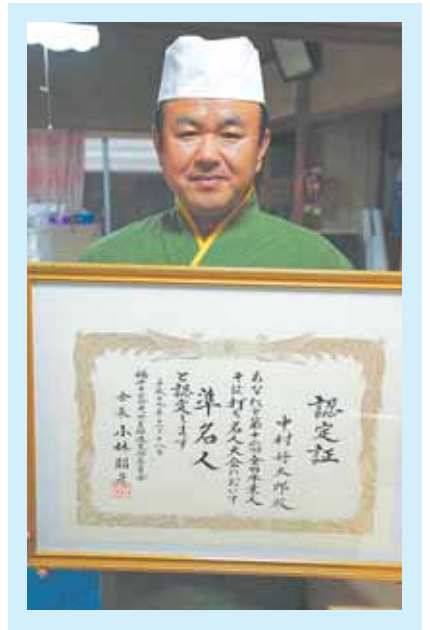 認定証
中村好太郎殿
あなたを第十六回全日本素人
そば打ち名人大会において
準名人
と認定します
会長 小林昭彦